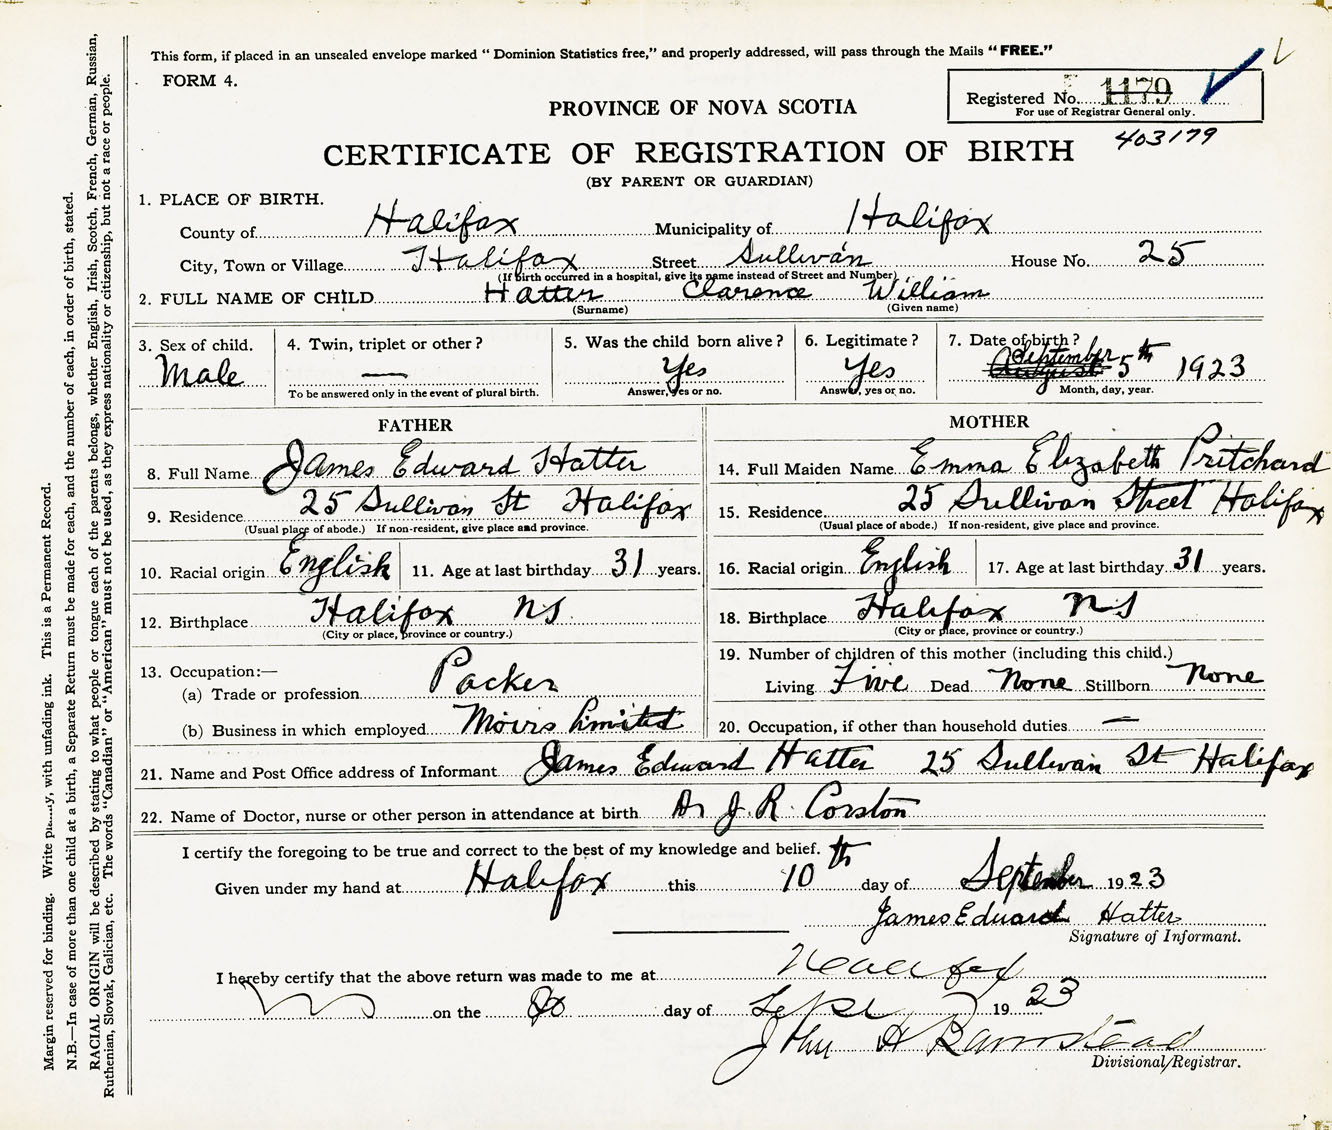 This form, if placed in an unsealed envelope marked " Dominion Statistics free," and properly addressed, will pass through the Mails "FREE."
FORM 4.
Registered No. 1179
For use of Registrar General only.
403179
PROVINCE OF NOVA SCOTIA
CERTIFICATE OF REGISTRATION OF BIRTH
(BY PARENT OR GUARDIAN)
1. PLACE OF BIRTH.
County of Halifax Municipality of Halifax
City, Town or Village Halifax Street Sullivan House No. 25
(If birth occurred in a hospital, give its name instead of Street and Number)
2. FULL NAME OF CHILD Hatter Clarence William
(Surname) (Given name)
3. Sex of child. Male
4. Twin, triplet or other? —
To be answered only in the event of plural birth.
5. Was the child born alive? Yes
Answer, yes or no.
6. Legitimate? Yes
Answer, yes or no.
7. Date of birth?
August September 5th 1923
Month, day, year.
FATHER
8. Full Name James Edward Hatter
9. Residence 25 Sullivan St Halifax
(Usual place of abode.) If non-resident, give place and province.
10. Racial origin English 11. Age at last birthday 31 years.
12. Birthplace Halifax NS
(City or place, province or country.)
13. Occupation:—
(a) Trade or profession Packer
(b) Business in which employed Moirs Limited
MOTHER
14. Full Maiden Name Emma Elizabeth Pritchard
15. Residence 25 Sullivan Street Halifax
(Usual place of abode.) If non-resident, give place and province.
16. Racial origin English 17. Age at last birthday 31 years.
18. Birthplace Halifax NS
(City or place, province or country.)
19. Number of children of this mother (including this child.)
Living Five Dead None Stillborn None
20. Occupation, if other than household duties —
21. Name and Post Office address of Informant James Edward Hatter 25 Sullivan St Halifax
22. Name of Doctor, nurse or other person in attendance at birth Dr J. R. Corston
I certify the foregoing to be true and correct to the best of my knowledge and belief.
Given under my hand at Halifax this 10th day of September 1923
James Edward Hatter
Signature of Informant.
I hereby certify that the above return was made to me at Halifax
on the day of Sept 1923
John H Barnstead
Divisional Registrar.
Margin reserved for binding. Write with unfading ink. This is a Permanent Record.
N.B.—In case of more than one child at a birth, a Separate Return must be made for each, and the number of each, in order of birth, stated.
RACIAL ORIGIN will be described by stating to what people or tongue each of the parents belongs, whether English, Irish, Scotch, French, German, Russian,
Ruthenian, Slovak, Galician, etc. The words "Canadian" or "American" must not be used, as they express nationality or citizenship, but not a race or people.